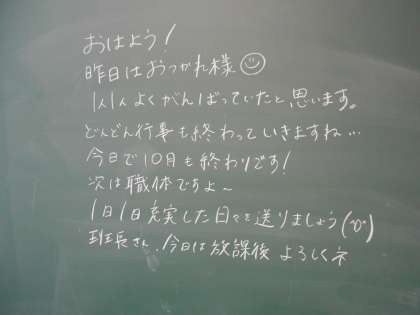 おはよう!
昨日はおつかれ様☺
1人1人よくがんばっていたと思います。
どんどん行事も終わっていきますね…
今日で10月も終わりです!
次は職体ですよ~
1日1日充実した日々を送りましょう(^o^)
班長さん、今日は放課後よろしくネ